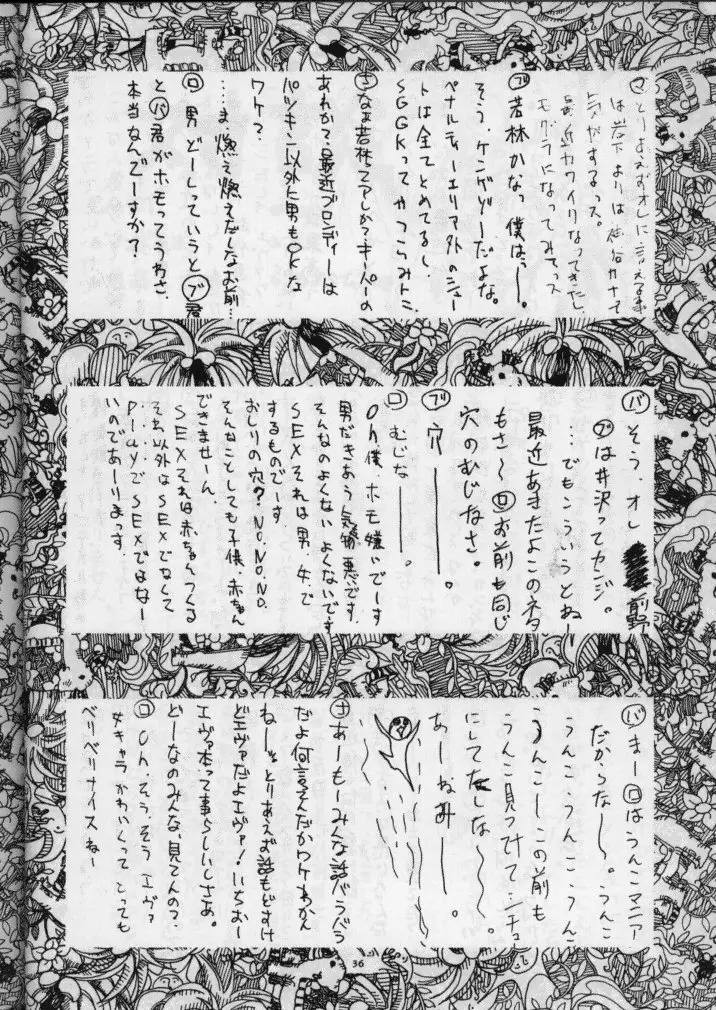 マ とりあえずオレに言える事
は岩下よりは
気がするっス。
最近カワイクなってきたし
モボラになってみてっス
ブ 若林かなっ僕はっー。
そう、ケンゲゾーだよな。
ペナルティーエリア外のシュー
トは全てとめてるし、
SGGKってやつらみトミ
ナ なぁ若林ってアレか?キーパーの
あれか?最近ブロンディーは
パツキン以外に男もOKな
ワケ?
…ま 燃え燃えだしなお前…
ロ 男 どーしていうとブ君
とバ君がホモってうわさ、
本当なんでーすか?
バ そう、オレ 前野
ブは井沢ってカンジ。
…でもこういうとねー
最近あきたよこのネタ
もさ〜ロお前も同じ
穴のむじなさ。
ブ 穴ーーー。
ロ むじなーーー。
Oh僕、ホモ嫌いでーす
男だきあう気物悪です
そんなのよくないよくないです
SEXそれは男、女で
するものでーす。
おしりの穴?NO.NO.NO.
そんなことしても子供、赤ちゃん
できませーん。
SEXそれは赤ちゃんつくる
それ以外はSEXでなくして
……PlayでSEXではなー
いのであーりまっす。
バ まーロはうんこマニア
だからなー〜。うんこ
うんこうんこうんこ
うんこーこの前も
うんこ見ってけてンチュ
にしてたしな〜〜。
あーねみーー。
ナ あーもーみんな話バラバラ
だよ何言ってんだかワケわかん
ねーッとりあえず話もどすけ
どエヴァだよエヴァ!いちおー
エヴァ本って事らしいしさぁ。
どーなのみんな、見てんの?
ロ Oh、そう、そうエヴァ
女キャラかわいくってとっても
ベリベリナイスねー
36